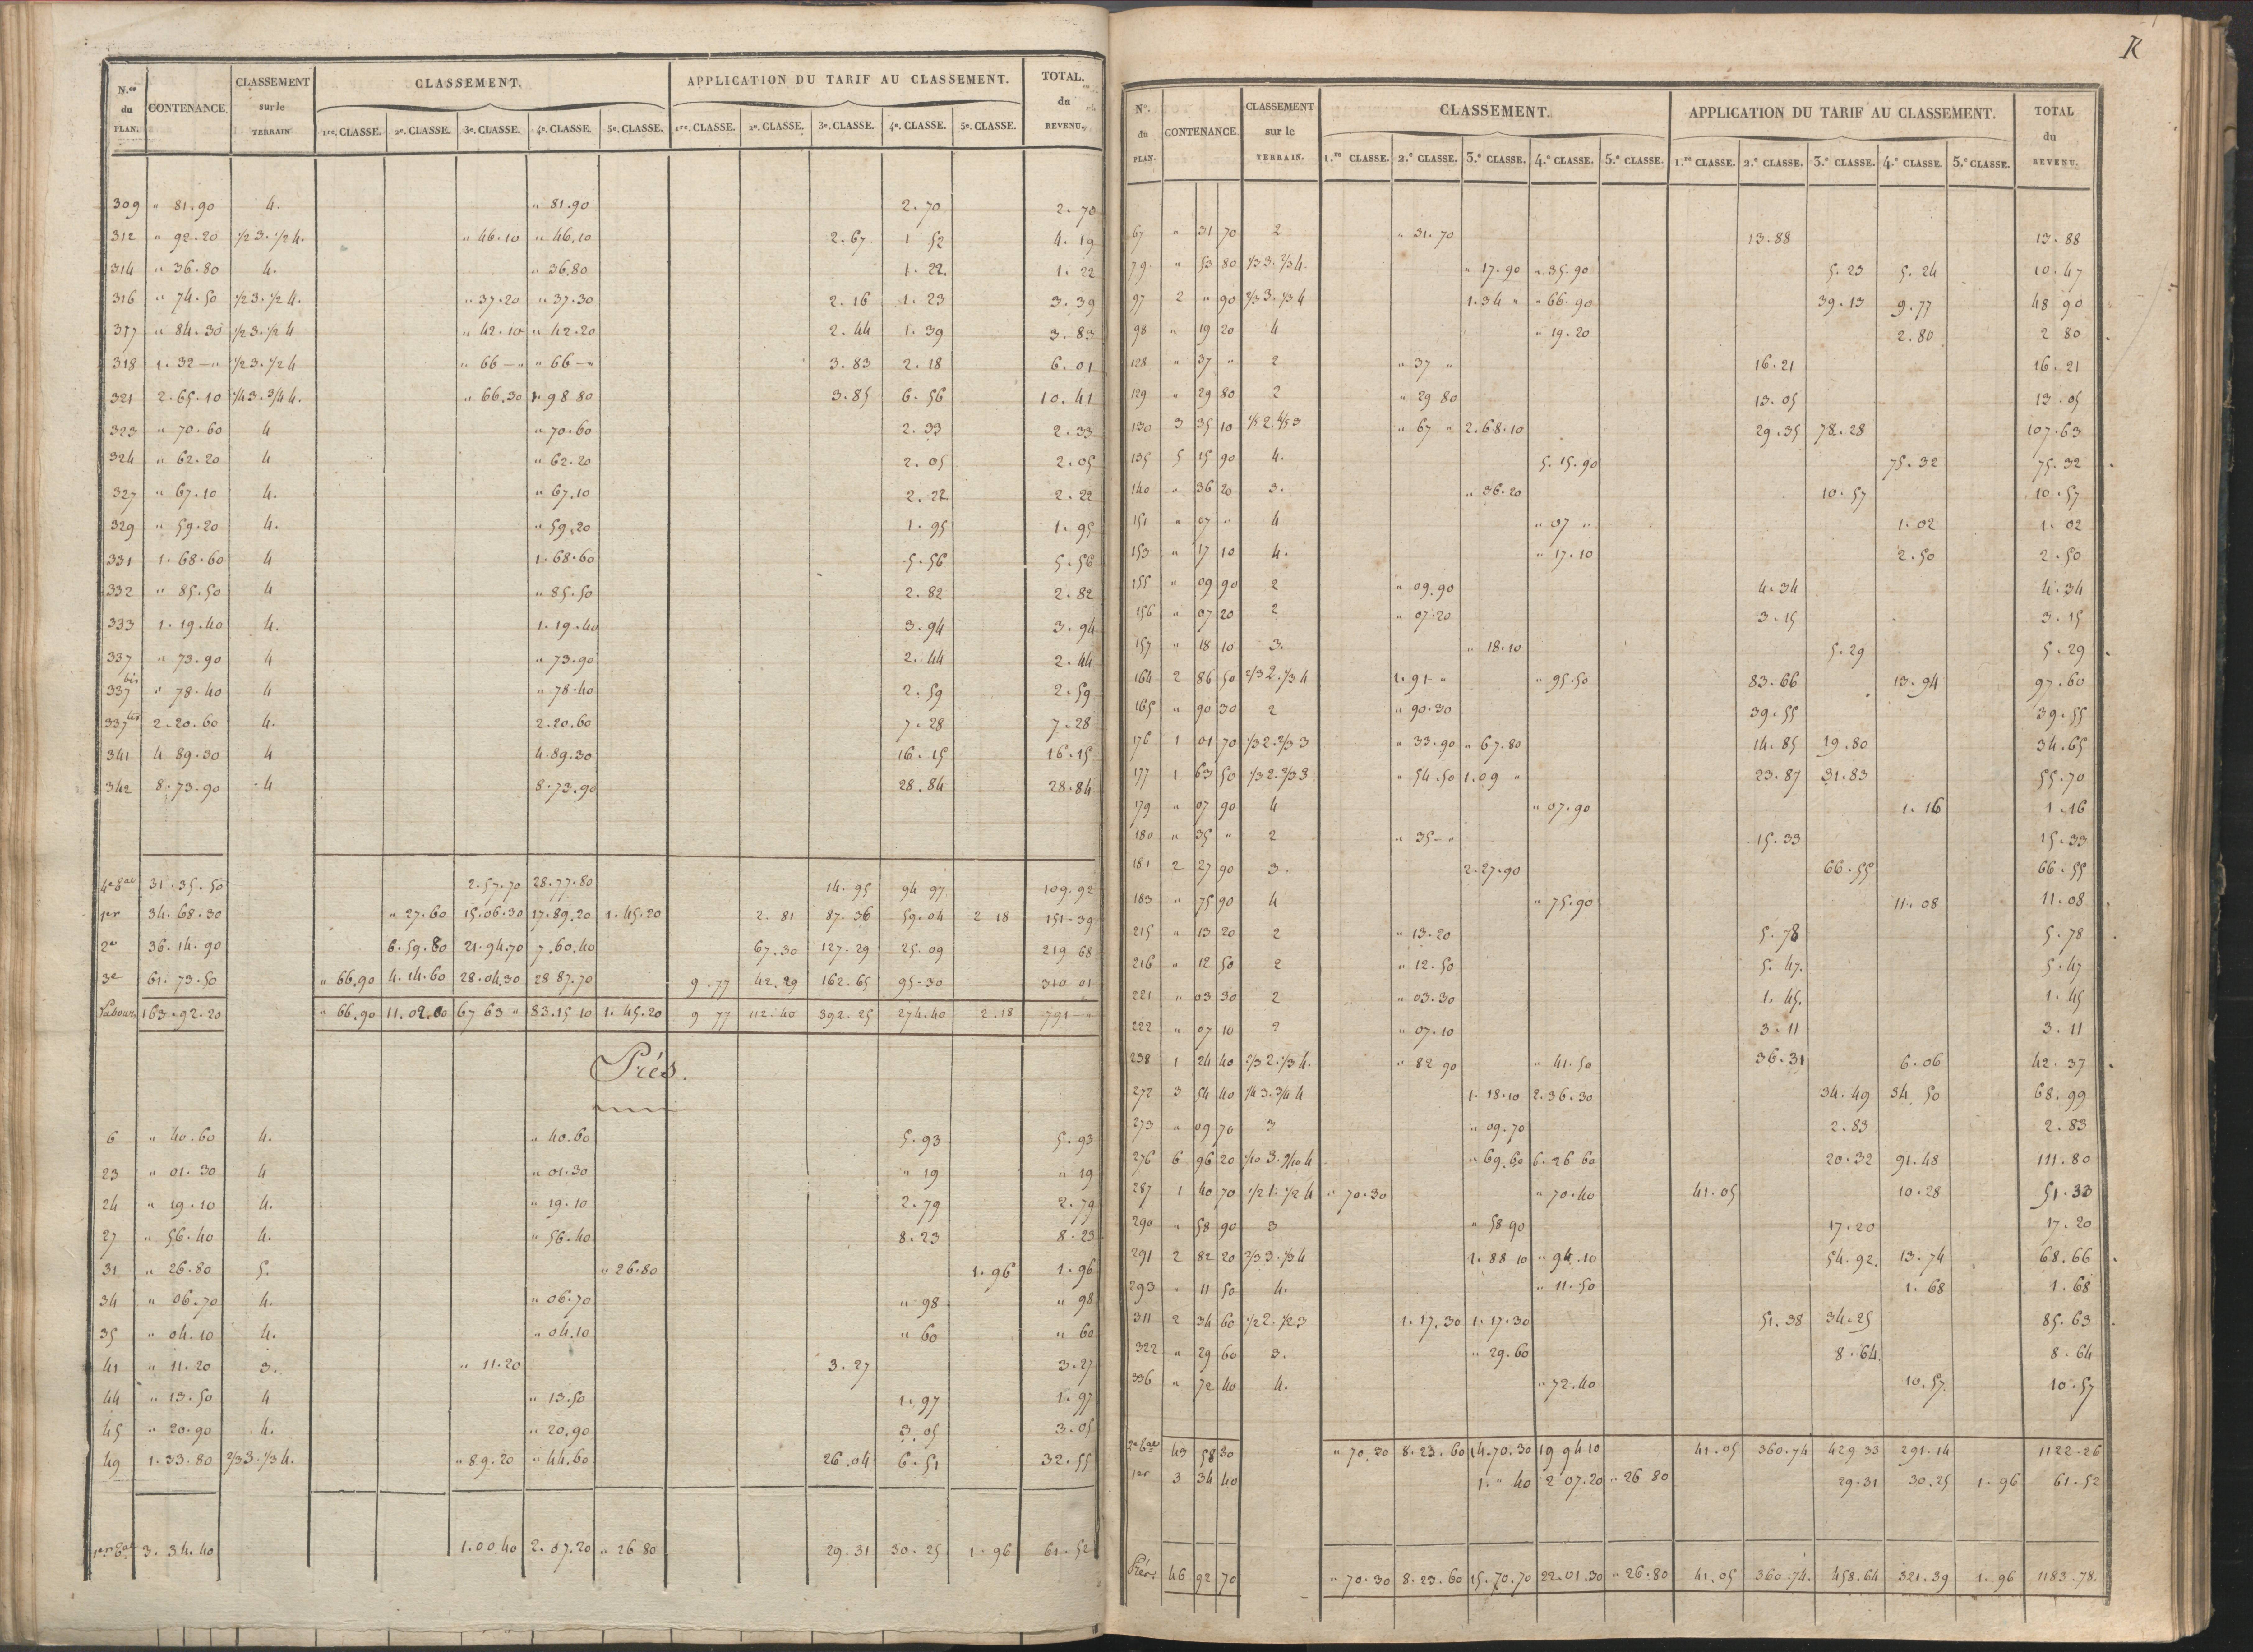 N.os du PLAN. CONTENANCE. CLASSEMENT sur le TERRAIN CLASSEMENT. APPLICATION DU TARIF AU CLASSEMENT. TOTAL. du REVENU.
1re. CLASSE. 2e. CLASSE. 3e. CLASSE. 4e. CLASSE. 5e. CLASSE. 1re. CLASSE. 2e. CLASSE. 3e. CLASSE. 4e. CLASSE. 5e. CLASSE.
309 " 81.90 4. " 81.90 2.70 2.70
312 " 92.20 1/2 3. 1/2 4. " 46.10 " 46.10 2.67 1 52 4.19
314 " 36.80 4. " 36.80 1.22. 1.22
316 " 74.50 1/2 3. 1/2 4. " 37.20 " 37.30 2.16 1.23 3.39
317 " 84.30 1/2 3. 1/2 4 " 42.10 " 42.20 2.44 1.39 3.83
318 1.32 — " 1/2 3. 1/2 4 " 66 — " " 66 — " 3.83 2.18 6.01
321 2.65.10 1/4 3. 3/4 4. " 66.30 1. 98 80 3.85 6.56 10.41
323 " 70.60 4 " 70.60 2.33 2.33
324 " 62.20 4 " 62.20 2.05 2.05
327 " 67.10 4. " 67.10 2.22 2.22
329 " 59.20 4. " 59.20 1.95 1.95
331 1.68.60 4 1.68.60 5.56 5.56
332 " 85.50 4 " 85.50 2.82 2.82
333 1.19.40 4. 1.19.40 3.94 3.94
337 " 73.90 4 " 73.90 2.44 2.44
337 bis " 78.40 4 " 78.40 2.59 2.59
337 ter 2.20.60 4. 2.20.60 7.28 7.28
341 4 89.30 4 4.89.30 16.15 16.15
342 8.73.90 4 8.73.90 28.84 28.84
4e Eal 31.35.50 2.57.70 28.77.80 14.95 94 97 109.92
1er 34.68.30 " 27.60 15.06.30 17.89.20 1.45.20 2.81 87.36 59.04 2 18 151-39
2e 36.14.90 6.59.80 21.94.70 7.60.40 67.30 127.29 25.09 219 68
3e 61.73.50 " 66.90 4.14.60 28.04.30 28 87.70 9.77 42.29 162.65 95-30 310 01
Labours 163.92.20 " 66.90 11.02.00 67 63 " 83.15 10 1.45.20 9 77 112.40 392.25 274.40 2.18 791 — "
Prés.
6 " 40.60 4. " 40.60 5.93 5.93
23 " 01.30 4 " 01.30 " 19 " 19
24 " 19.10 4. " 19.10 2.79 2.79
27 " 56.40 4. " 56.40 8.23 8.23
31 " 26.80 5. " 26.80 1.96 1.96
34 " 06.70 4. " 06.70 " 98 " 98
35 " 04.10 4. " 04.10 " 60 " 60
41 " 11.20 3. " 11.20 3.27 3.27
44 " 13.50 4 " 13.50 1.97 1.97
45 " 20.90 4. " 20.90 3.05 3.05
49 1.33.80 2/3 3. 1/3 4. " 89.20 " 44.60 26.04 6.51 32.55
1er Eal 3.34.40 1.00 40 2.07.20 " 26 80 29.31 30.25 1.96 61.52
K
No. du PLAN. CONTENANCE. CLASSEMENT sur le TERRAIN. CLASSEMENT. APPLICATION DU TARIF AU CLASSEMENT. TOTAL du REVENU.
1.re CLASSE. 2.e CLASSE. 3.e CLASSE. 4.e CLASSE. 5.e CLASSE. 1.re CLASSE. 2.e CLASSE. 3.e CLASSE. 4.e CLASSE. 5.e CLASSE.
67 " 31 70 2 " 31.70 13.88 13.88
79 " 53 80 1/3 3. 2/3 4. " 17.90 " 35.90 5.23 5.24 10.47
97 2 " 90 2/3 3. 1/3 4 1.34 " " 66.90 39.13 9.77 48 90
98 " 19 20 4 " 19.20 2.80 2 80
128 " 37 " 2 " 37 " 16.21 16.21
129 " 29 80 2 " 29 80 13.05 13.05
130 3 35 10 1/5 2. 4/5 3 " 67 " 2.68.10 29.35 78.28 107.63
135 5 15 90 4. 5.15.90 75.32 75.32
140 " 36 20 3. " 36.20 10.57 10.57
151 " 07 " 4 " 07 " 1.02 1.02
153 " 17 10 4. " 17.10 2.50 2.50
155 " 09 90 2 " 09.90 4.34 4.34
156 " 07 20 2 " 07.20 3.15 3.15
157 " 18 10 3. " 18.10 5.29 5.29
164 2 86 50 2/3 2. 1/3 4 1.91 - " " 95.50 83.66 13.94 97.60
165 " 90 30 2 " 90.30 39.55 39.55
176 1 01 70 1/3 2. 2/3 3 " 33.90 " 67.80 14.85 19.80 34.65
177 1 63 50 1/3 2. 2/3 3 " 54.50 1.09 " 23.87 31.83 55.70
179 " 07 90 4 " 07.90 1.16 1.16
180 " 35 " 2 " 35 - " 15.33 15.33
181 2 27 90 3. 2.27.90 66.55 66.55
183 " 75 90 4 " 75.90 11.08 11.08
215 " 13 20 2 " 13.20 5.78 5.78
216 " 12 50 2 " 12.50 5.47. 5.47
221 " 03 30 2 " 03.30 1.45. 1.45
222 " 07 10 2 " 07.10 3.11 3.11
238 1 24 40 2/3 2. 1/3 4. " 82 90 " 41.50 36.31 6.06 42.37
272 3 54 40 1/4 3. 3/4 4 1.18.10 2.36.30 34.49 34.50 68.99
273 " 09 70 3 " 09.70 2.83 2.83
276 6 96 20 1/10 3. 9/10 4 " 69.60 6.26 60 20.32 91.48 111.80
287 1 40 70 1/2 1. 1/2 4 " 70.30 " 70.40 41.05 10.28 51.33
290 " 58 90 3 " 58 90 17.20 17.20
291 2 82 20 2/3 3. 1/3 4 1.88 10 " 94.10 54.92. 13.74 68.66
293 " 11 50 4. " 11.50 1.68 1.68
311 2 34 60 1/2 2. 1/2 3 1.17.30 1.17.30 51.38 34.25 85.63
322 " 29 60 3. " 29.60 8.64. 8.64
336 " 72 40 4. " 72.40 10.57. 10.57
2e Eal 43 58 30 " 70.30 8.23.60 14.70.30 19 94 10 41.05 360.74 429 33 291.14 1122-26
1er 3 34 40 1. " 40 2 07.20 " 26 80 29.31 30.25 1.96 61.52
Prés 46 92 70 " 70.30 8.23.60 15.70.70 22.01.30 " 26.80 41.05 360.74. 458.64 321.39 1.96 1183.78.